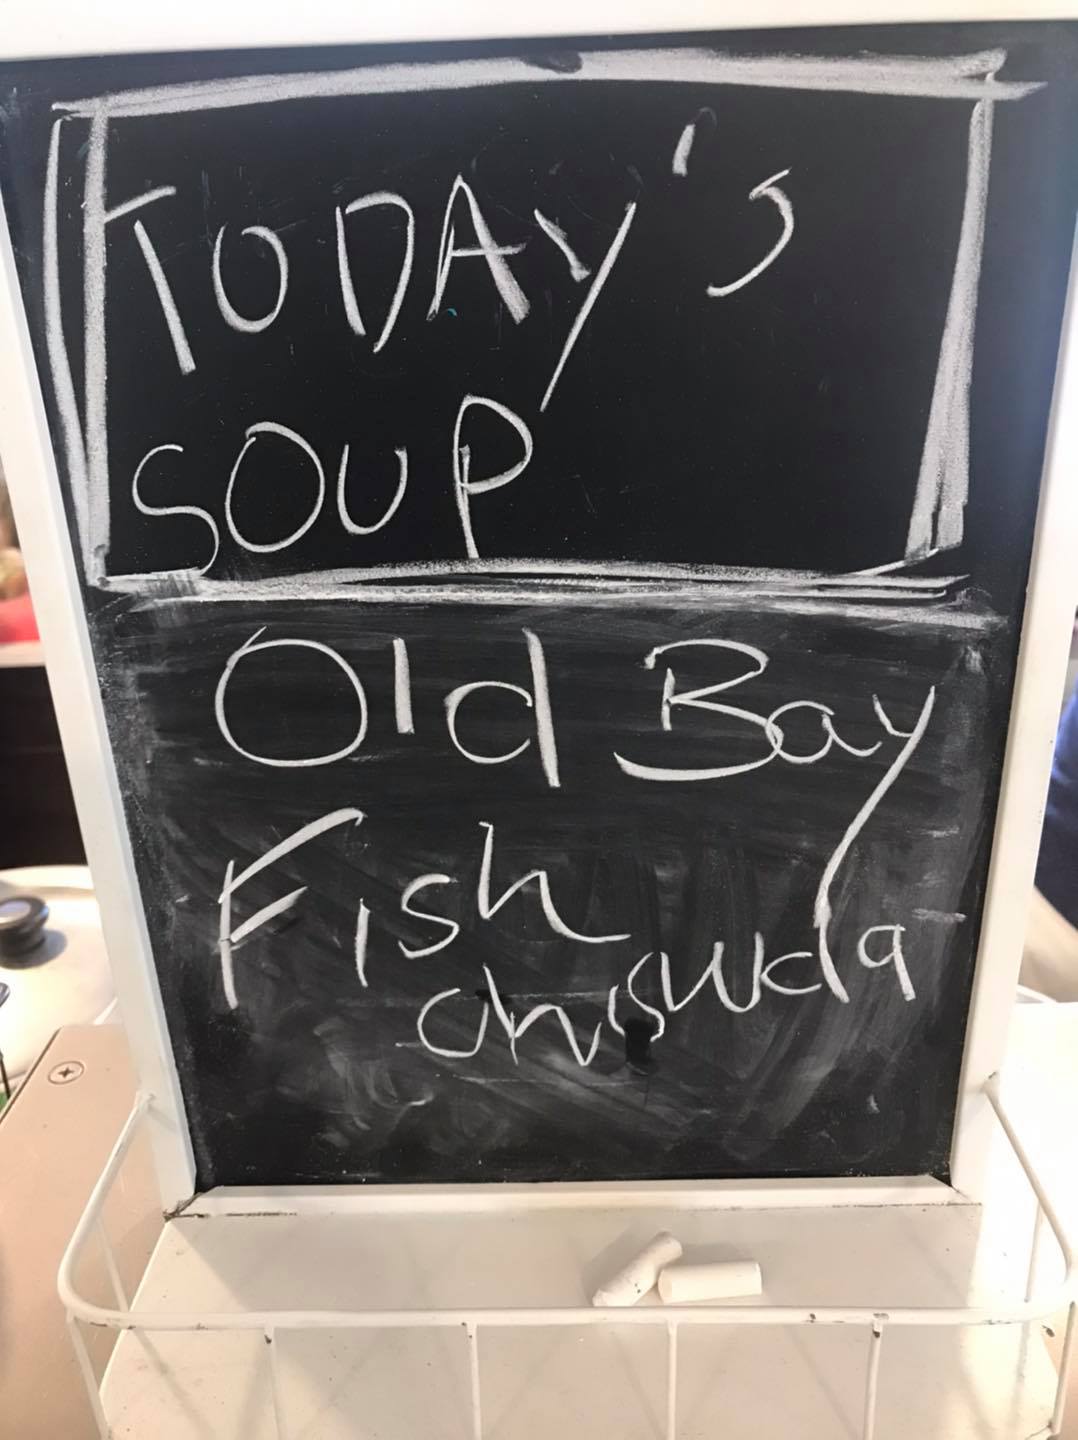 TODAY's
SOUP
Old Bay
Fish